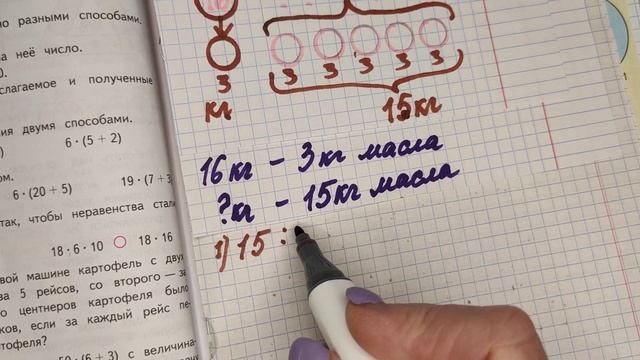 но разными способами.
на неё число.
0.
слагаемое и полученные
ния двумя способами.
6·(5 + 2)
ом.
6·(20 + 5) 19·(7 + 3)
так, чтобы неравенства стали
18·6·10 18·16
вой машине картофель с дву
ва 5 рейсов, со второго — за
о центнеров картофеля было
ков, если за каждый рейс пе
тофеля?
50·(6 + 3) с величина
16
3
кг
3 3 3 3 3
15кг
16кг – 3кг масла
?кг – 15кг масла
1) 15 :